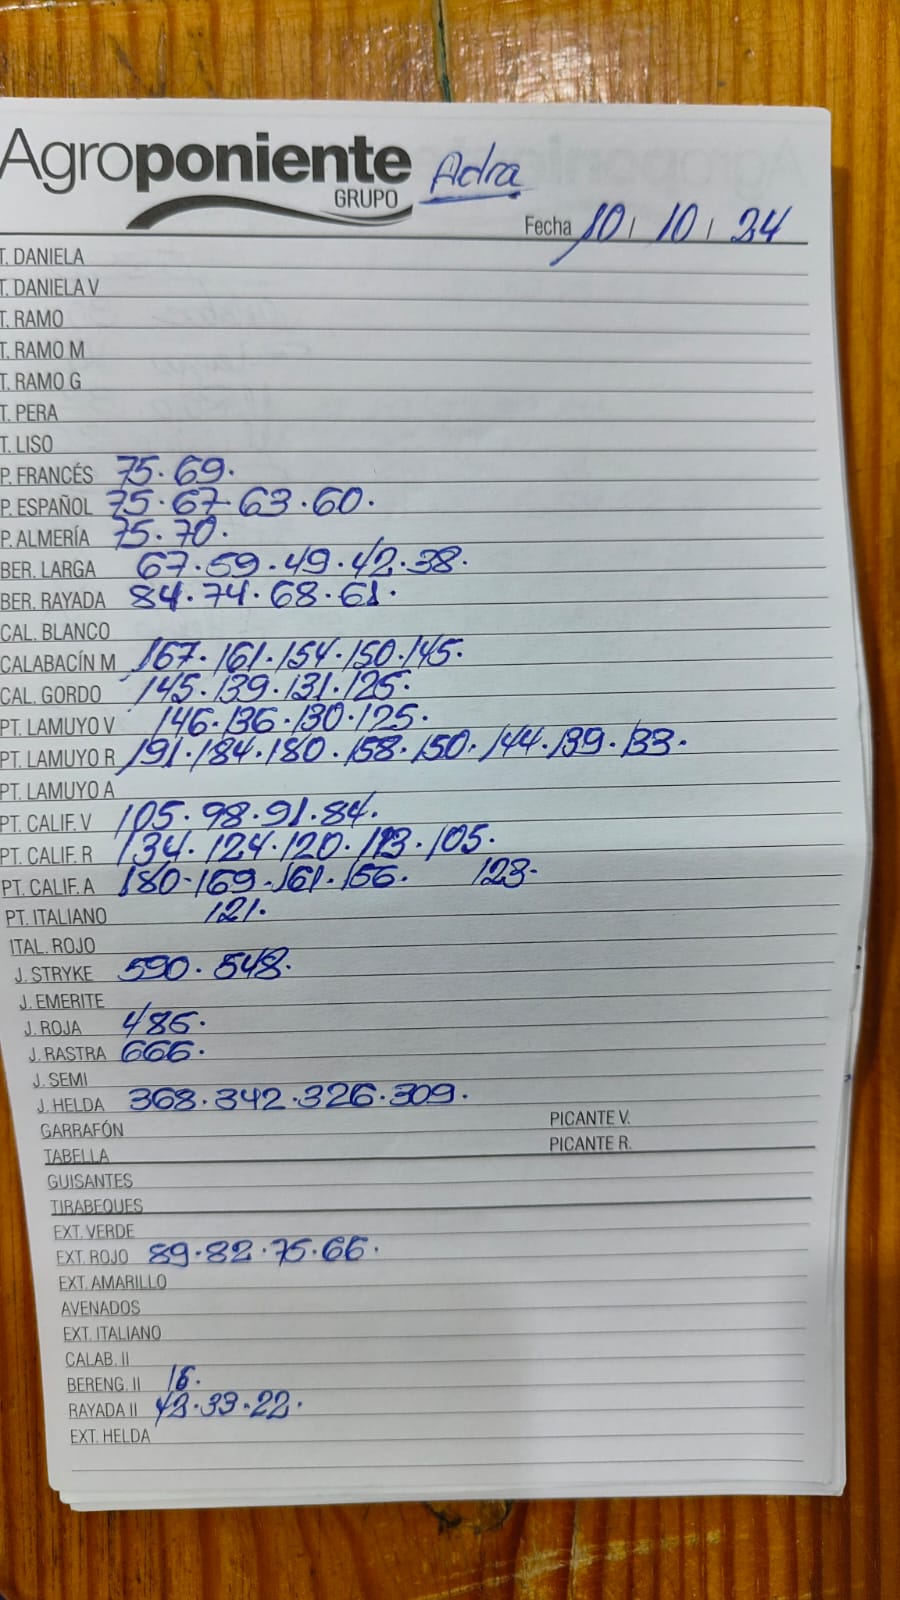 Agroponiente Adra
GRUPO
Fecha 10 / 10 / 24
T. DANIELA
T. DANELA V
T. RAMO
T. RAMO M
T. RAMO G
T. PERA
T. LISO
P. FRANCÉS 75. 69.
P. ESPAÑOL 75. 67. 63. 60.
P. ALMERÍA 75. 70.
BER. LARGA 67. 59. 49. 42. 38.
BER. RAYADA 84. 74. 68. 61.
CAL. BLANCO
CALABACÍN M 167. 161. 154. 150. 145.
CAL. GORDO 145. 139. 131. 125.
PT. LAMUYO V 146. 136. 130. 125.
PT. LAMUYO R 191. 184. 180. 158. 150. 144. 139. 133.
PT. LAMUYO A
PT. CALIF. V 105. 98. 91. 84.
PT. CALIF. R 134. 124. 120. 113. 105.
PT. CALIF. A 180. 169. 161. 156. 123.
PT. ITALIANO 121.
ITAL. ROJO
J. STRYKE 590. 548.
J. EMERITE
J. ROJA 485.
J. RASTRA 666.
J. SEMI
J. HELDA 368. 342. 326. 309.
GARRAFÓN PICANTE V.
TABELLA PICANTE R.
GUISANTES
TIRABEQUES
EXT. VERDE
EXT. ROJO 89. 82. 75. 66.
EXT. AMARILLO
AVENADOS
EXT. ITALIANO
CALAB. II
BERENG. II 16.
RAYADA II 42. 33. 22.
EXT. HELDA